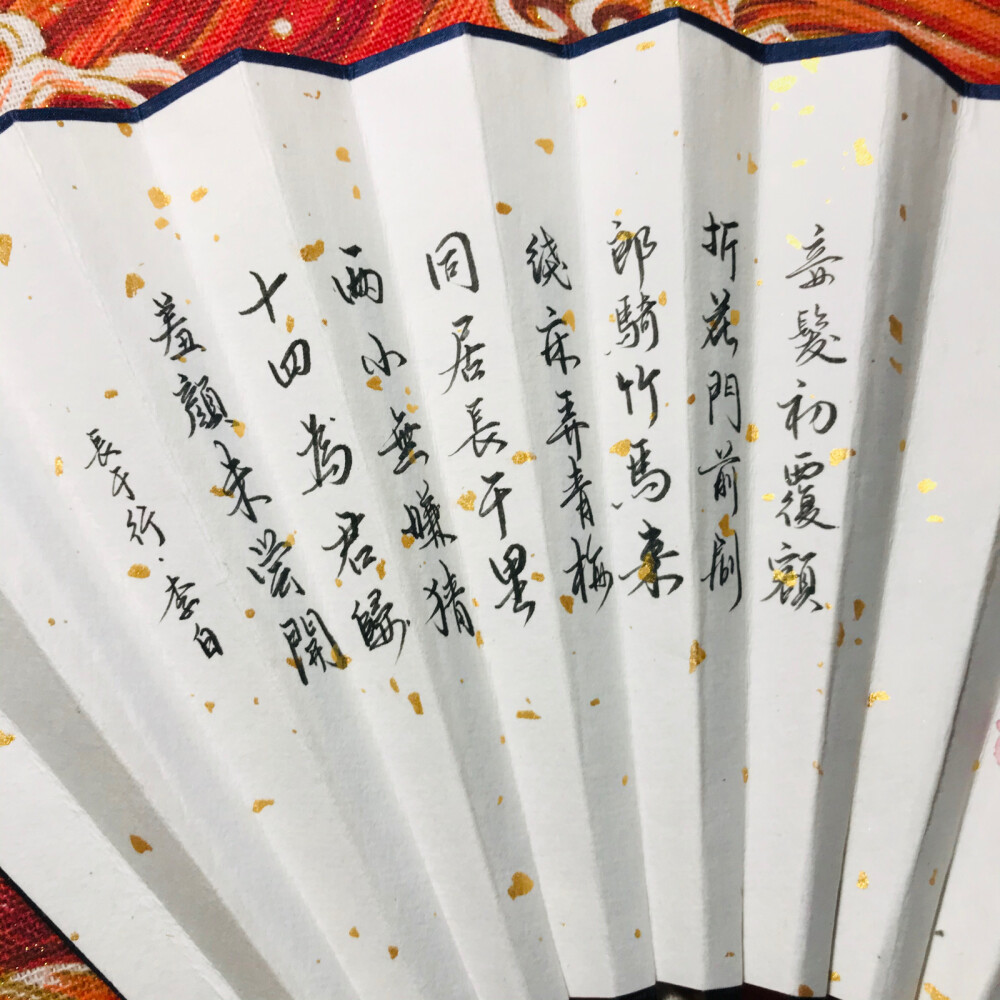 妾髮初覆額
折花門前剧
郎騎竹馬来
繞床弄青梅
同居長干里
兩小無嫌猜
十四為君婦
羞顏未尝開
長干行·李白